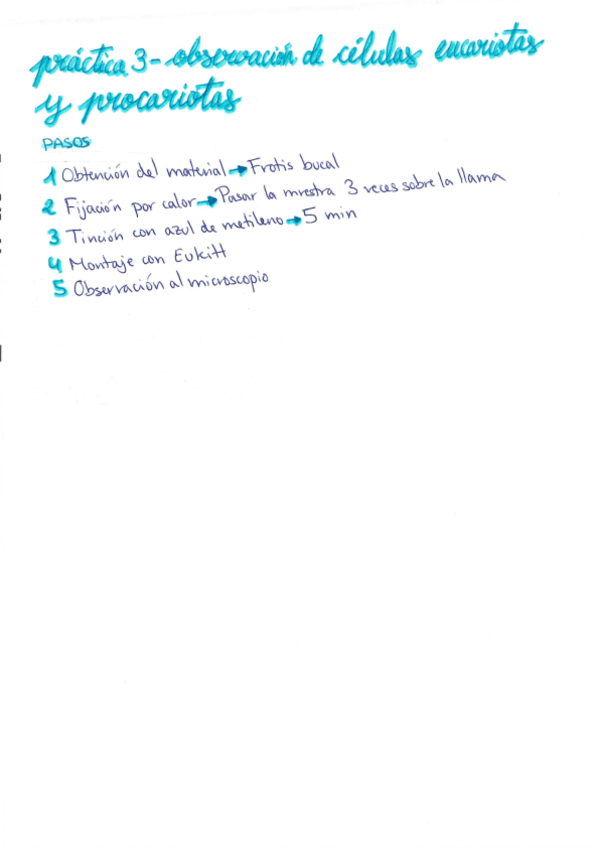 práctica 3- observación de células eucariotas
y procariotas
PASOS
1 Obtención del material → Frotis bucal
2 Fijación por calor → Pasar la muestra 3 veces sobre la llama
3 Tinción con azul de metileno → 5 min
4 Montaje con Eukitt
5 Observación al microscopio